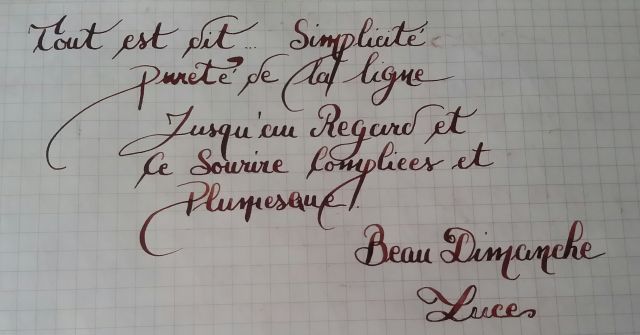 Tout est dit... Simplicité
pureté de la ligne
Jusqu'au Regard et
Ce Sourire Complices et
Plumesque!
Beau Dimanche
Luce